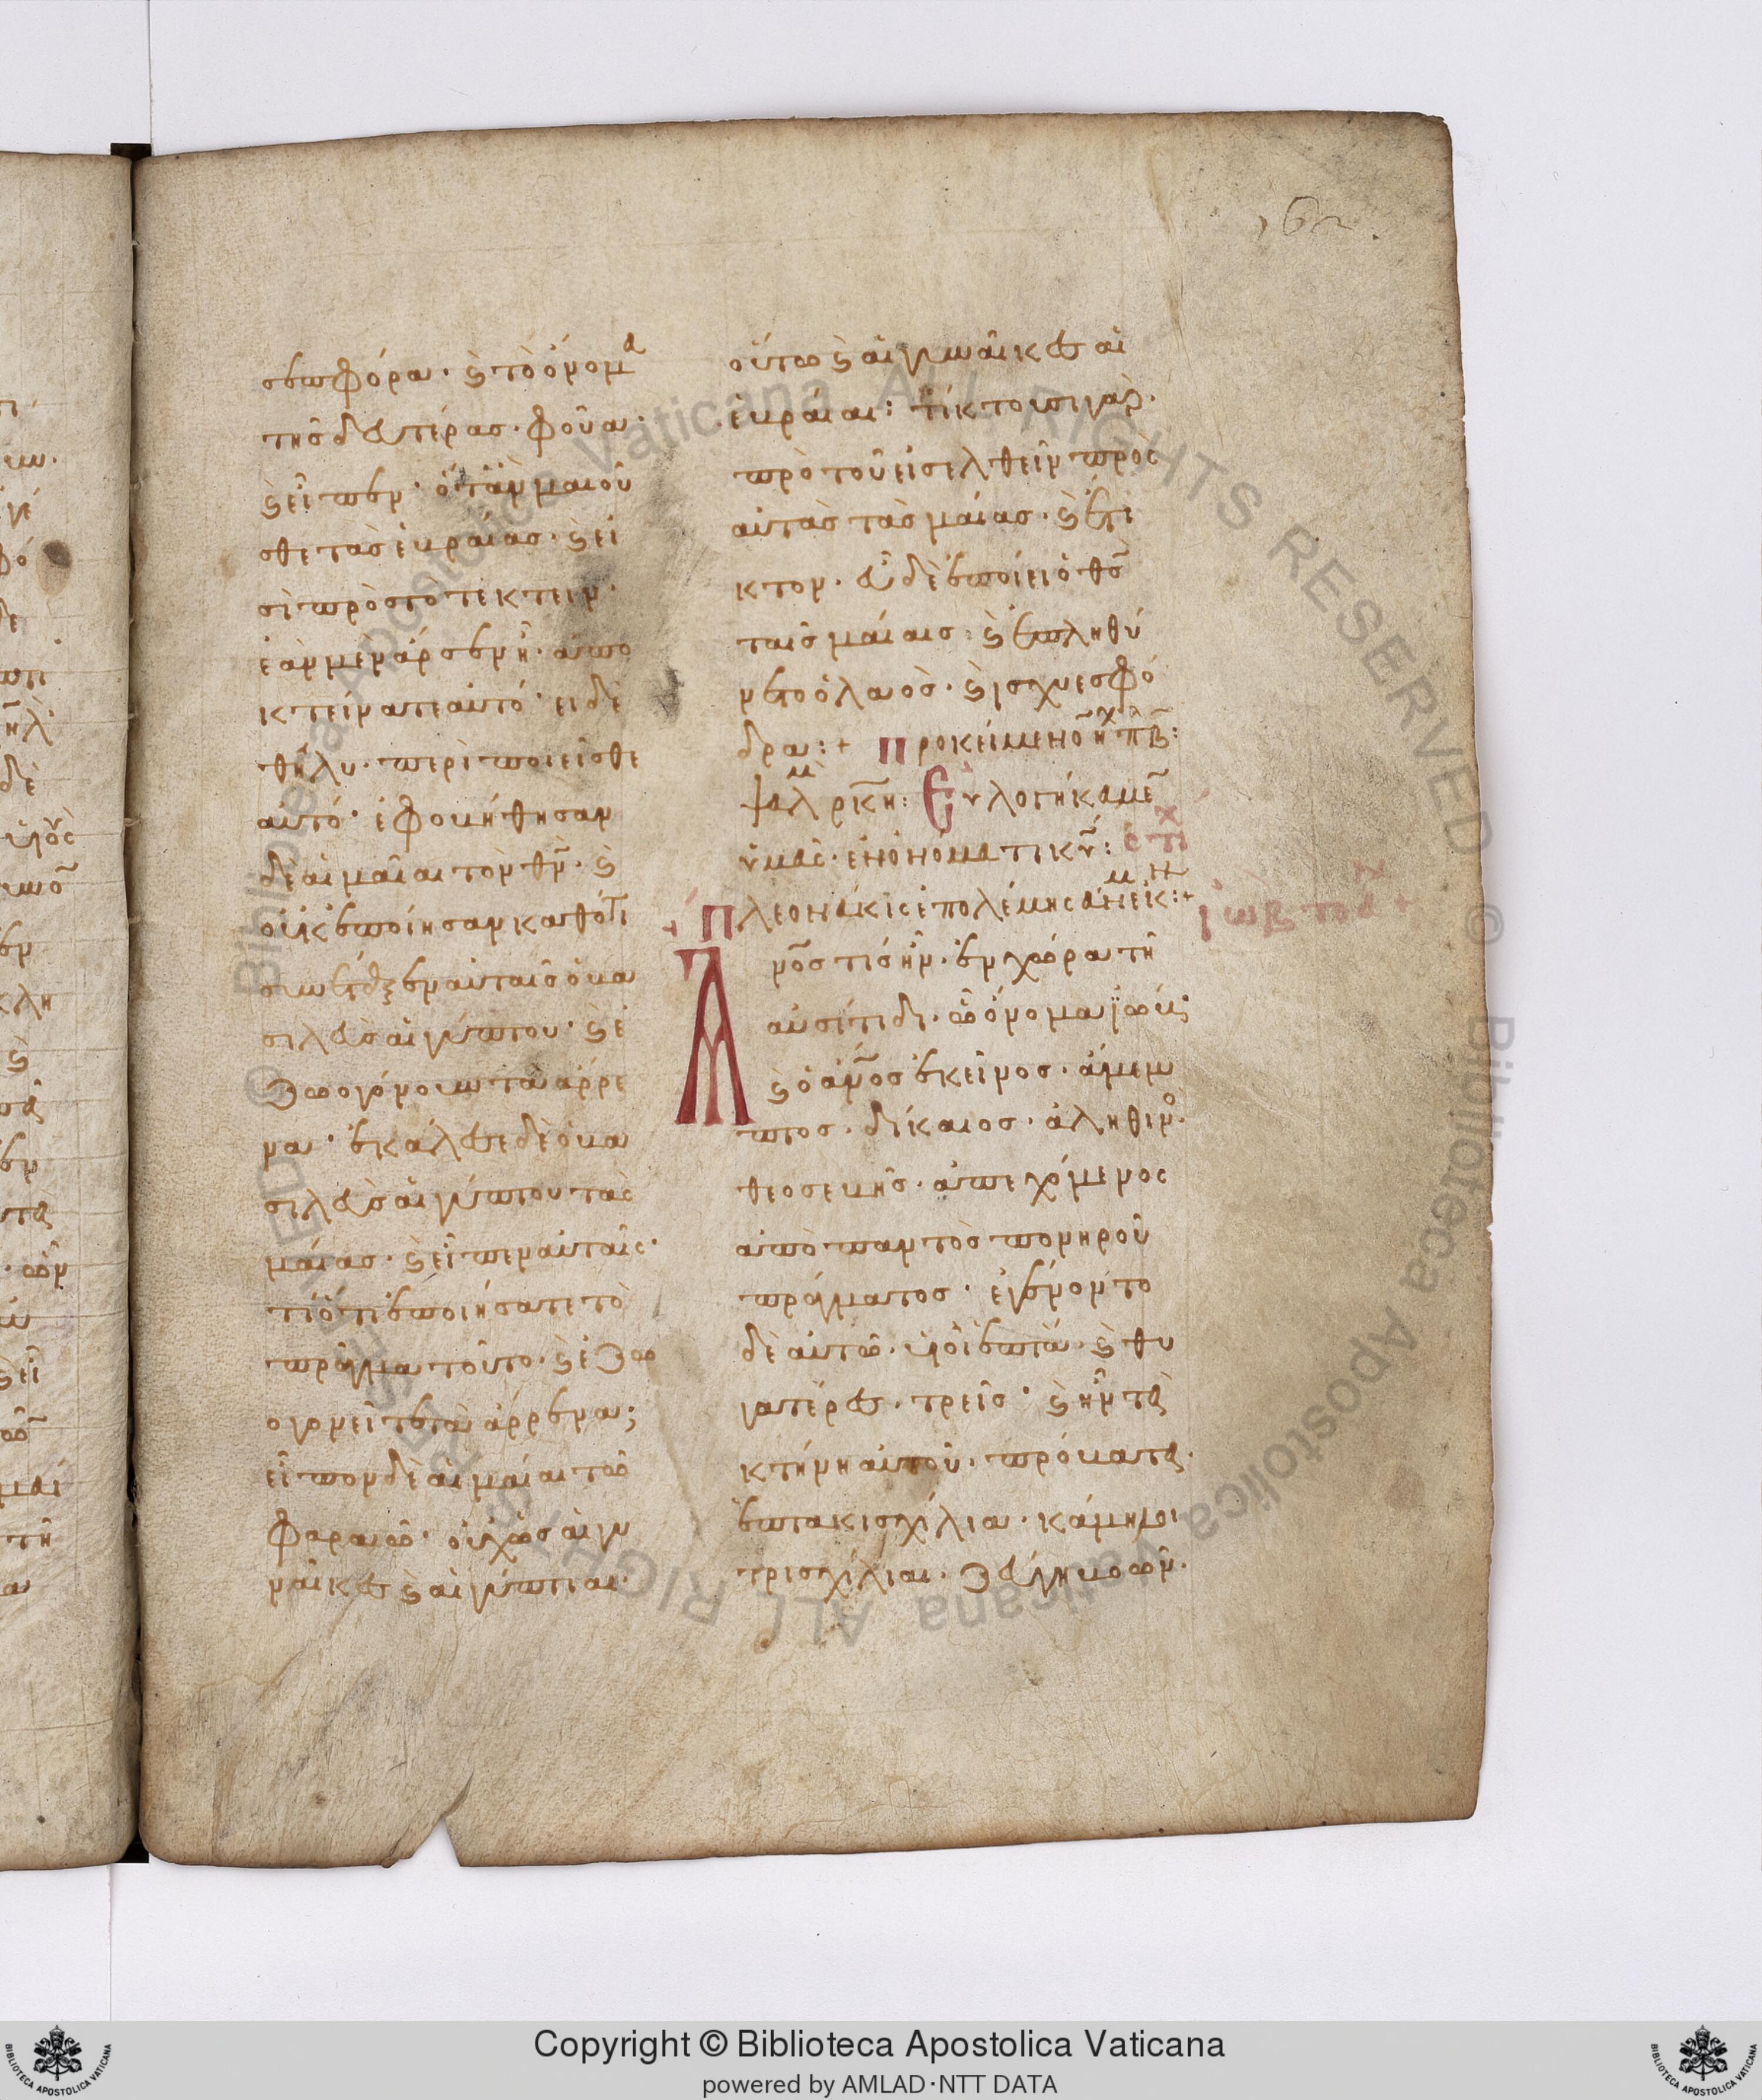 162.
σεπφόρα· ϗ τὸ ὄνομα
τῆς δευτέρας· φουά·
ϗ εἶπεν· ὅταν μαιοῦ
σθε τὰς ἑβραίας· ϗ εἰ
σὶ πρὸς το τεκτειν·
ἐὰν μεν ἄρσεν ῆ· ἀπο
κτείνατε αὐτό· ει δὲ
θῆλυ· περὶποιεῖσθε
αὐτό· ἐφοβήθησαν
δε αἱ μαῖαι τὸν θν̄· ϗ
οὐκ ἐποίησαν καθότι
συνέταξεν αὐταῖς ὁ βα
σιλεὺς αἰγύπτου· ϗ ἐ
ζωογόνουν τὰ ἄρρε
να· ἐκάλεσε δὲ ὁ βα
σιλεὺς αἰγύπτου τὰς
μαίας· ϗ εἶπεν αὐταῖς·
τί ὅτι ἐποιήσατε τὸ
πρᾶγμα τοῦτο· ϗ ἐζωο
ογονεῖτε τὰ ἄρρενα;
εἶπον δὲ αἱ μαίαι τῶ
φαραώ· οὐχ ὡς αἱ γυ
ναῖκες ϗ αἰγύπτιαι·
οὕτω ϗ αἱ γυναῖκες αἱ
ἑβραίαι: τίκτουσι γὰρ·
πρὸ τοῦ εἰσελθεῖν πρὸς
αὐτὰς τὰς μαίας· ϗ ἔτι
κτον· εὖ δὲ ἐποίει ὁ θς̄
ταῖς μαίαις: ϗ ἐπληθύ
νετο ὁ λαὸς· ϗ ἴσχυε σφό
δρα:+ Προκείμενον ηχ πβ:
ψαλμ ρκη: Εὐλογήκαμεν
ὑμᾶς· ἐν ὀνόματι κυ: στιχ
Πλεονάκις ἐπολέμησάν με ἐκ:+
ιὼβ το α +
Ἄνος τίς ἦν· ἐν χώρα τῆ
αὐσίτιδι· ὧ ὄνομα ϊώβ·
ϗ ὁ ἄνος ἐκεῖνος· ἄμεμ
πτος· δίκαιος· ἀληθινὸ·
θεοσεβῆς· ἀπεχόμενος
ἀπὸ παντὸς πονηροῦ
πράγματος· ἐγένοντο
δὲ αὐτῶ· υἱοὶ ἑπτὰ· ϗ θυ
γατέρες· τρεῖς· ϗ ἦν τὰ
κτήνη αὐτοῦ· πρόβατα·
ἑπτακισχίλια· κάμηλοι
τρισχίλιαι· ζεύγη βοῶν·
Copyright © Biblioteca Apostolica Vaticana
powered by AMLAD·NTT DATA